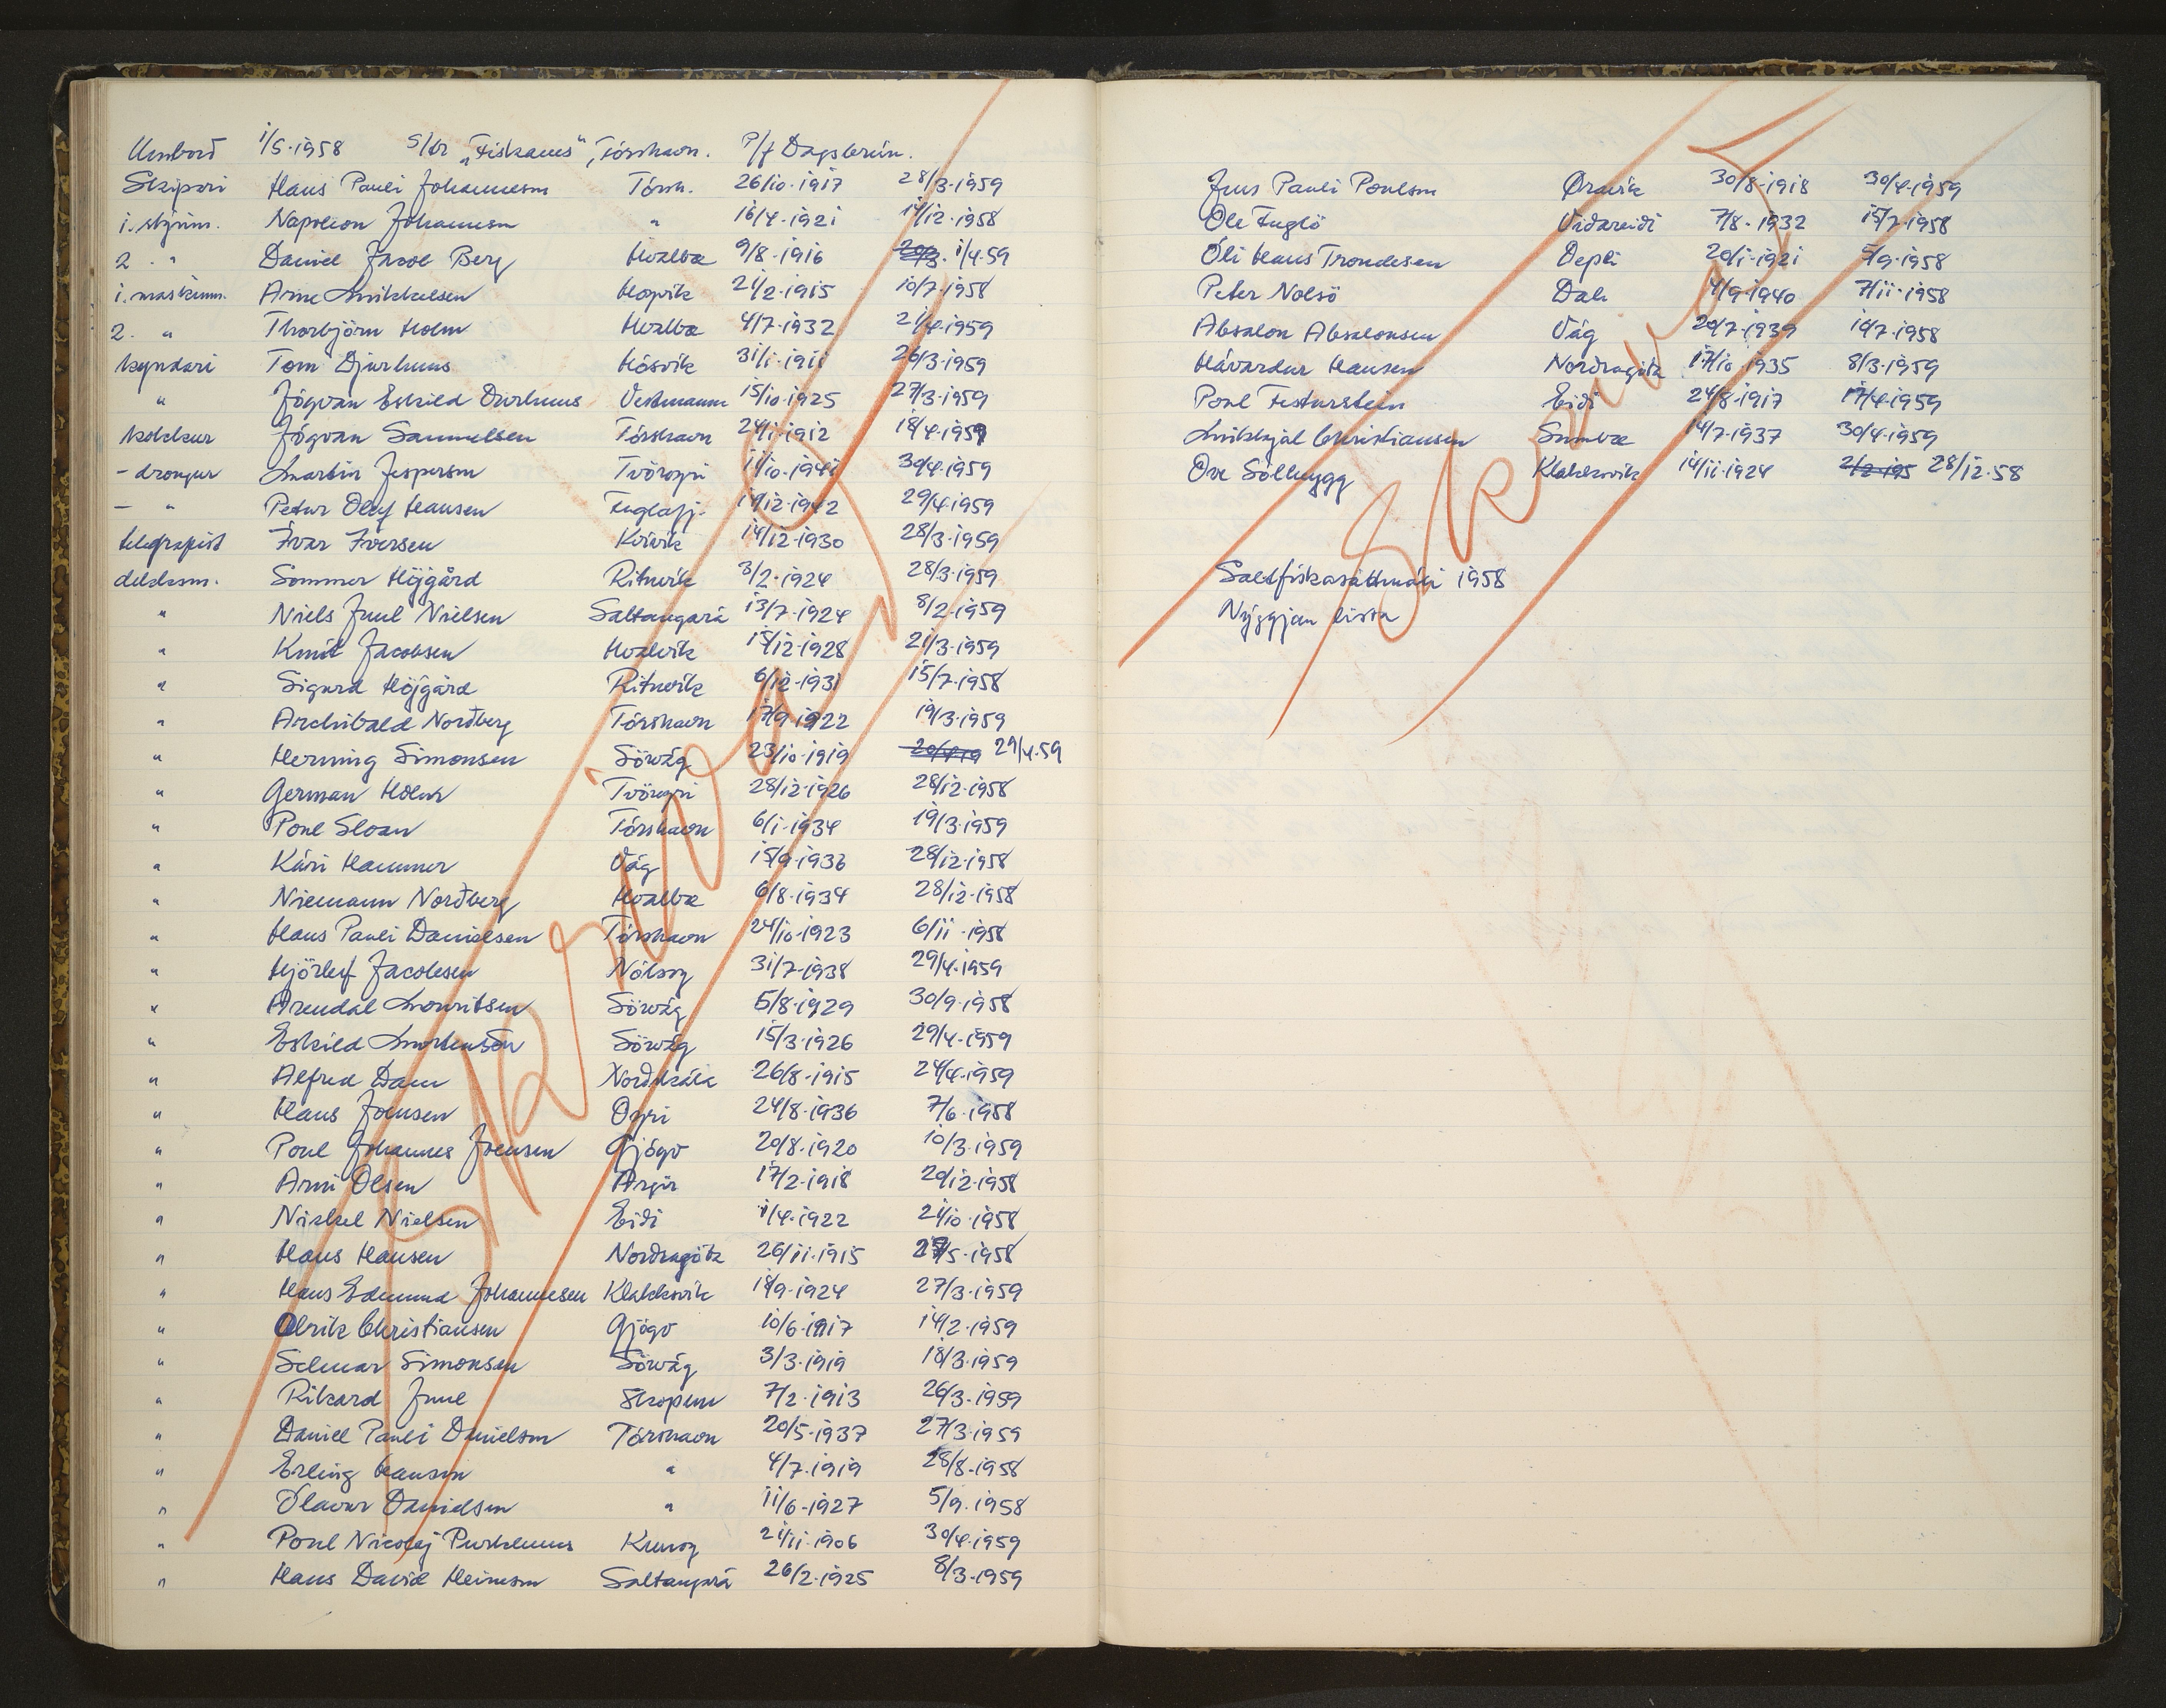 Umborð 1/5-1958 S/tr „Fiskanes“, Tórshavn. P/f Dagsbrún.
Skipari Hans Pauli Johannesen Tórsh. 26/10-1917 28/3-1959
1. stýrim. Napoleon Johannesen " 16/4-1921 14/12-1958
2. " Daniel Jacob Berg Hvalba 9/8-1916 1/4-59
1. maskinm. Arne Mikkelsen Hopvík 21/2-1915 10/7-1958
2. " Thorbjörn Holm Hvalba 4/7-1932 21/4-1959
kyndari Tom Djurhuus Hósvík 31/1-1911 26/3-1959
" Jógvan Eskild Durhuus Vestmanna 15/10-1925 27/3-1959
kokkur Jógvan Samuelsen Tórshavn 24/1-1912 18/4-1959
- drongur Martin Jespersen Tvöroyri 11/10-1941 30/4-1959
- " Petur Oluf Hansen Fuglafj. 19/12-1942 29/4-1959
telegrapist Ivar Iversen Kvívík 14/12-1930 28/3-1959
dekksm. Sommer Höjgård Rituvík 3/2-1924 28/3-1959
" Niels Juul Nielsen Saltangará 13/7-1924 8/2-1959
" Knút Jacobsen Hvalvík 15/12-1928 21/3-1959
" Sigurd Höjgård Rituvík 6/12-1931 15/7-1958
" Archibald Norðberg Tórshavn 17/9-1922 19/3-1959
" Henning Simonsen Sörvág 23/10-1919 29/4-59
" German Holm Tvöroyri 28/12-1926 28/12-1958
" Poul Sloan Tórshavn 6/1-1934 19/3-1959
" Kári Hammer Vág 15/9-1936 28/12-1958
" Niemann Norðberg Hvalba 6/8-1934 28/12-1958
" Hans Pauli Danielsen Tórshavn 24/10-1923 6/11-1958
" Hjörleif Jacobsen Nólsoy 31/7-1938 29/4-1959
" Arendal Mouritsen Sörvág 5/8-1929 30/9-1958
" Eskild Mortensen Sörvág 15/3-1926 29/4-1959
" Alfred Dam Norðskála 26/8-1915 24/4-1959
" Hans Joensen Oyri 24/8-1936 7/6-1958
" Poul Johannes Joensen Gjógv 20/8-1920 10/3-1959
" Arni Olsen Argir 17/2-1918 20/12-1958
" Nickel Nielsen Eiði 1/4-1922 21/10-1958
" Hans Hansen Norðragöta 26/11-1915 27/5-1958
" Hans Edmund Johannesen Klakksvík 18/9-1924 27/3-1959
" Olrik Christiansen Gjógv 10/6-1917 14/2-1959
" Selmar Simonsen Sörvág 3/3-1919 18/3-1959
" Rikard Juul Skopun 7/2-1913 26/3-1959
" Daniel Pauli Danielsen Tórshavn 20/5-1937 27/3-1959
" Erling Hansen " 4/7-1919 28/8-1958
" Ólavur Danielsen " 11/6-1927 5/9-1958
" Poul Nicolaj Purkhuus Kunoy 21/11-1906 30/4-1959
" Hans David Heinesen Saltangará 26/2-1925 8/3-1959
Skrásett
Jens Pauli Poulsen Øravík 30/8-1918 30/4-1959
Ole Fuglö Viðareiði 7/8-1932 15/7-1958
Óli Hans Trondesen Depli 20/1-1921 5/9-1958
Peter Nolsö Dali 4/9-1940 7/11-1958
Absalon Absalonsen Vág 20/7-1939 10/7-1958
Hávardur Hansen Norðragöta 17/10-1935 8/3-1959
Poul Festirstein Eiði 24/8-1917 17/4-1959
Mikkjal Christiansen Sumba 14/7-1937 30/4-1959
Ove Sólbrygg Klakksvík 14/11-1924 28/12-58
Saltfiskasáttmáli 1958
Nýggjan lista